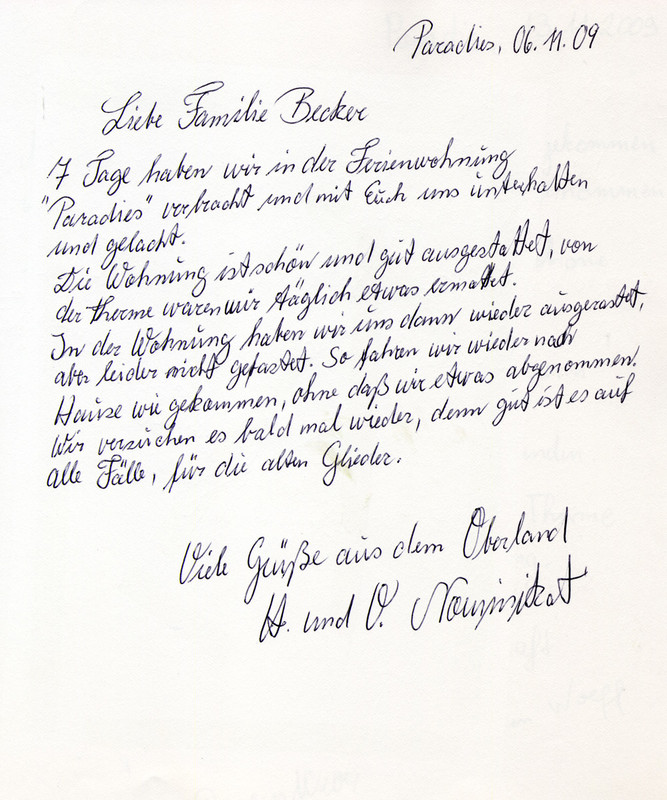 Paradies, 06.11.09
Liebe Familie Becker
7 Tage haben wir in der Ferienwohnung
"Paradies" verbracht und mit Euch uns unterhalten
und gelacht.
Die Wohnung ist schön und gut ausgestattet, von
der Therme waren wir täglich etwas ermattet.
In der Wohnung haben wir uns dann wieder ausgerastet,
aber leider nicht gefastet. So fahren wir wieder nach
Hause wie gekommen, ohne daß wir etwas abgenommen.
Wir versuchen es bald mal wieder, denn gut ist es auf
alle Fälle, für die alten Glieder.
Viele Grüße aus dem Oberland
H. und O.